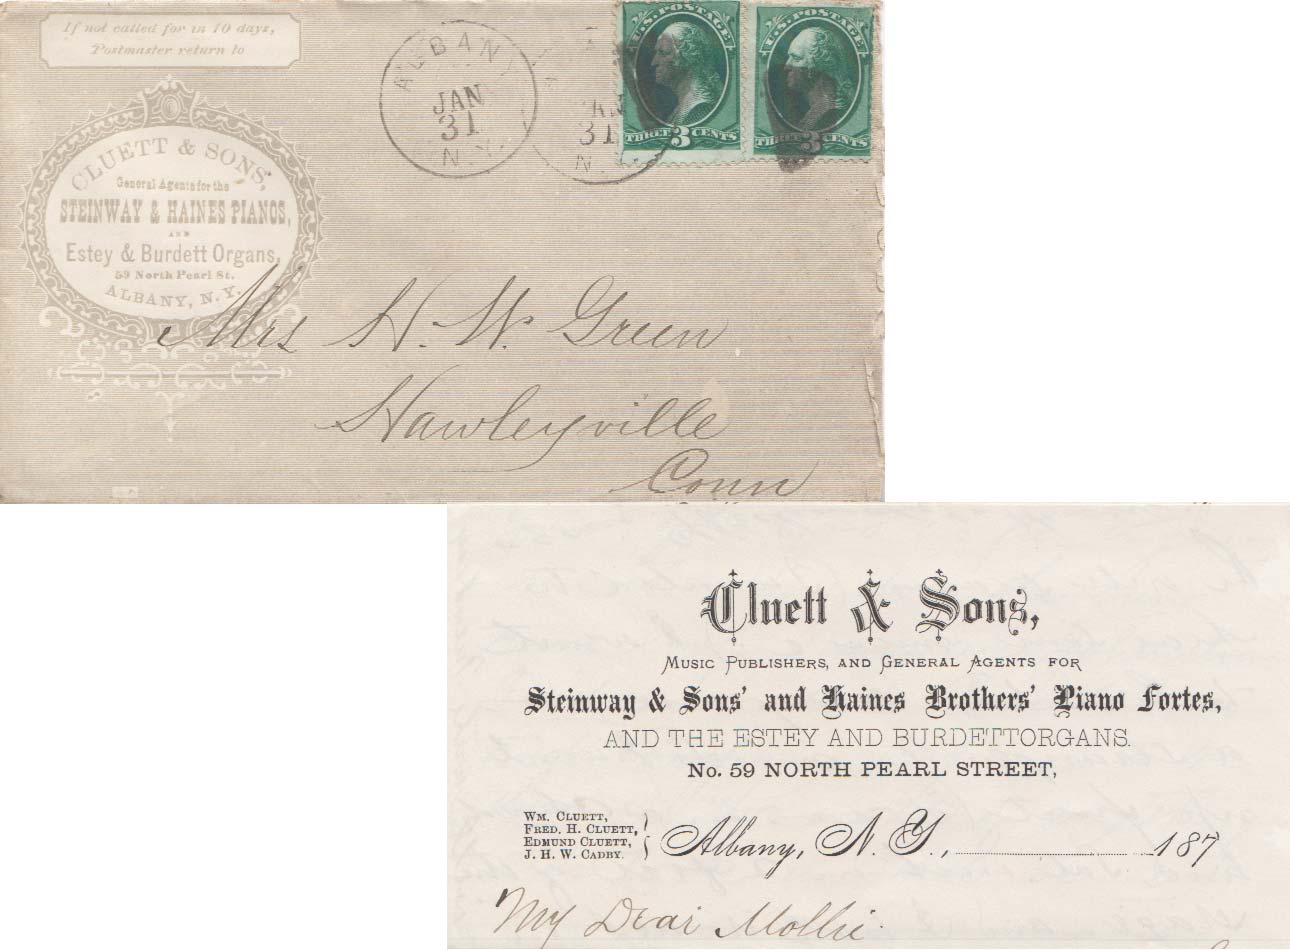 If not called for in 10 days,
Postmaster return to
CLUETT & SONS,
General Agents for the
STEINWAY & HAINES PIANOS,
AND
Estey & Burdett Organs,
59 North Pearl St.
ALBANY, N.Y.
ALBANY
JAN
31
N.Y.
AN
31
N.
U.S. POSTAGE
THREE 3 CENTS
U.S. POSTAGE
THREE 3 CENTS
Mrs H. W. Green
Hawleyville
Conn
Cluett & Sons,
MUSIC PUBLISHERS, AND GENERAL AGENTS FOR
Steinway & Sons' and Haines Brothers' Piano Fortes,
AND THE ESTEY AND BURDETTORGANS.
No. 59 NORTH PEARL STREET,
WM. CLUETT,
FRED. H. CLUETT,
EDMUND CLUETT,
J. H. W. CADBY.
Albany, N. Y., 187
My Dear Mollie